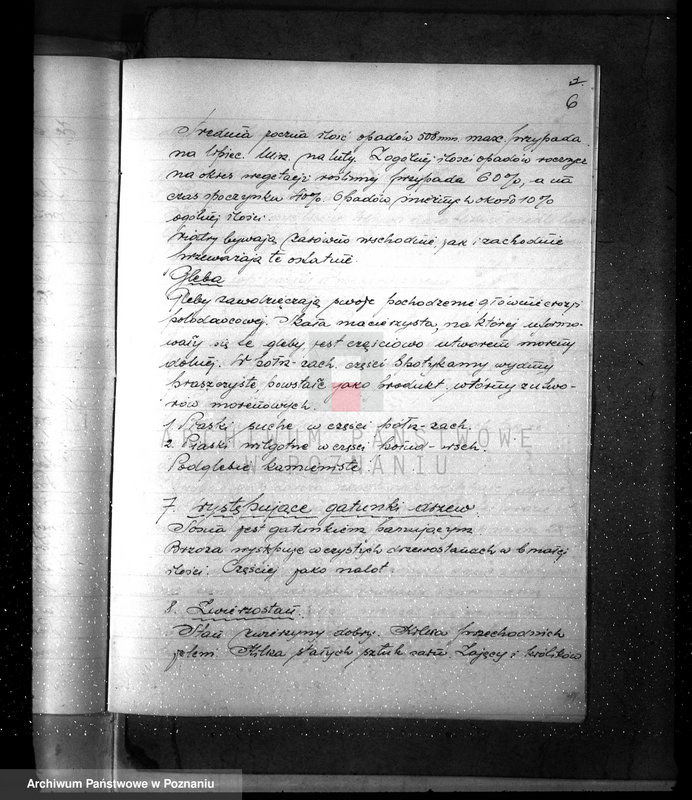 1.
6
Średnia roczna ilość opadów 508 mm. max. przypada
na lipiec. Min. na luty. Z ogólnej ilości opadów roczych
na okres wegetacji roślinnej przypada 60%, a na
czas spoczynku 40%. Opadów śnieżnych około 10%
ogólnej ilości.
Wiatry bywają zarówno wschodnie jak i zachodnie
przeważają te ostatnie.
Gleba
Gleby zawdzięczają swoje pochodzenie głównie erozji
polodowcowej. Skała macierzysta, na której uformo-
wały się te gleby jest częściowo utworem moreny
dolnej. W półn-zach. części spotykamy wydmy
piaszczyste powstałe jako produkt wtórny z utwo-
rów morenowych.
1. Piaski suche w części półn-zach.
2. Piaski wilgotne w części połud-wsch.
Podglebie kamieniste.
7. Występujące gatunki drzew.
Sosna jest gatunkiem panującym.
Brzoza występuje w czystych drzewostanach w b. małej
ilości. Częściej jako nalot
8. Zwierzostan.
Stan zwierzyny dobry. Kilka przechodnich
jeleni. Kilka stałych sztuk sarn. Zajęcy i królików
ARCHIWUM PAŃSTWOWE
W POZNANIU
Archiwum Państwowe w Poznaniu